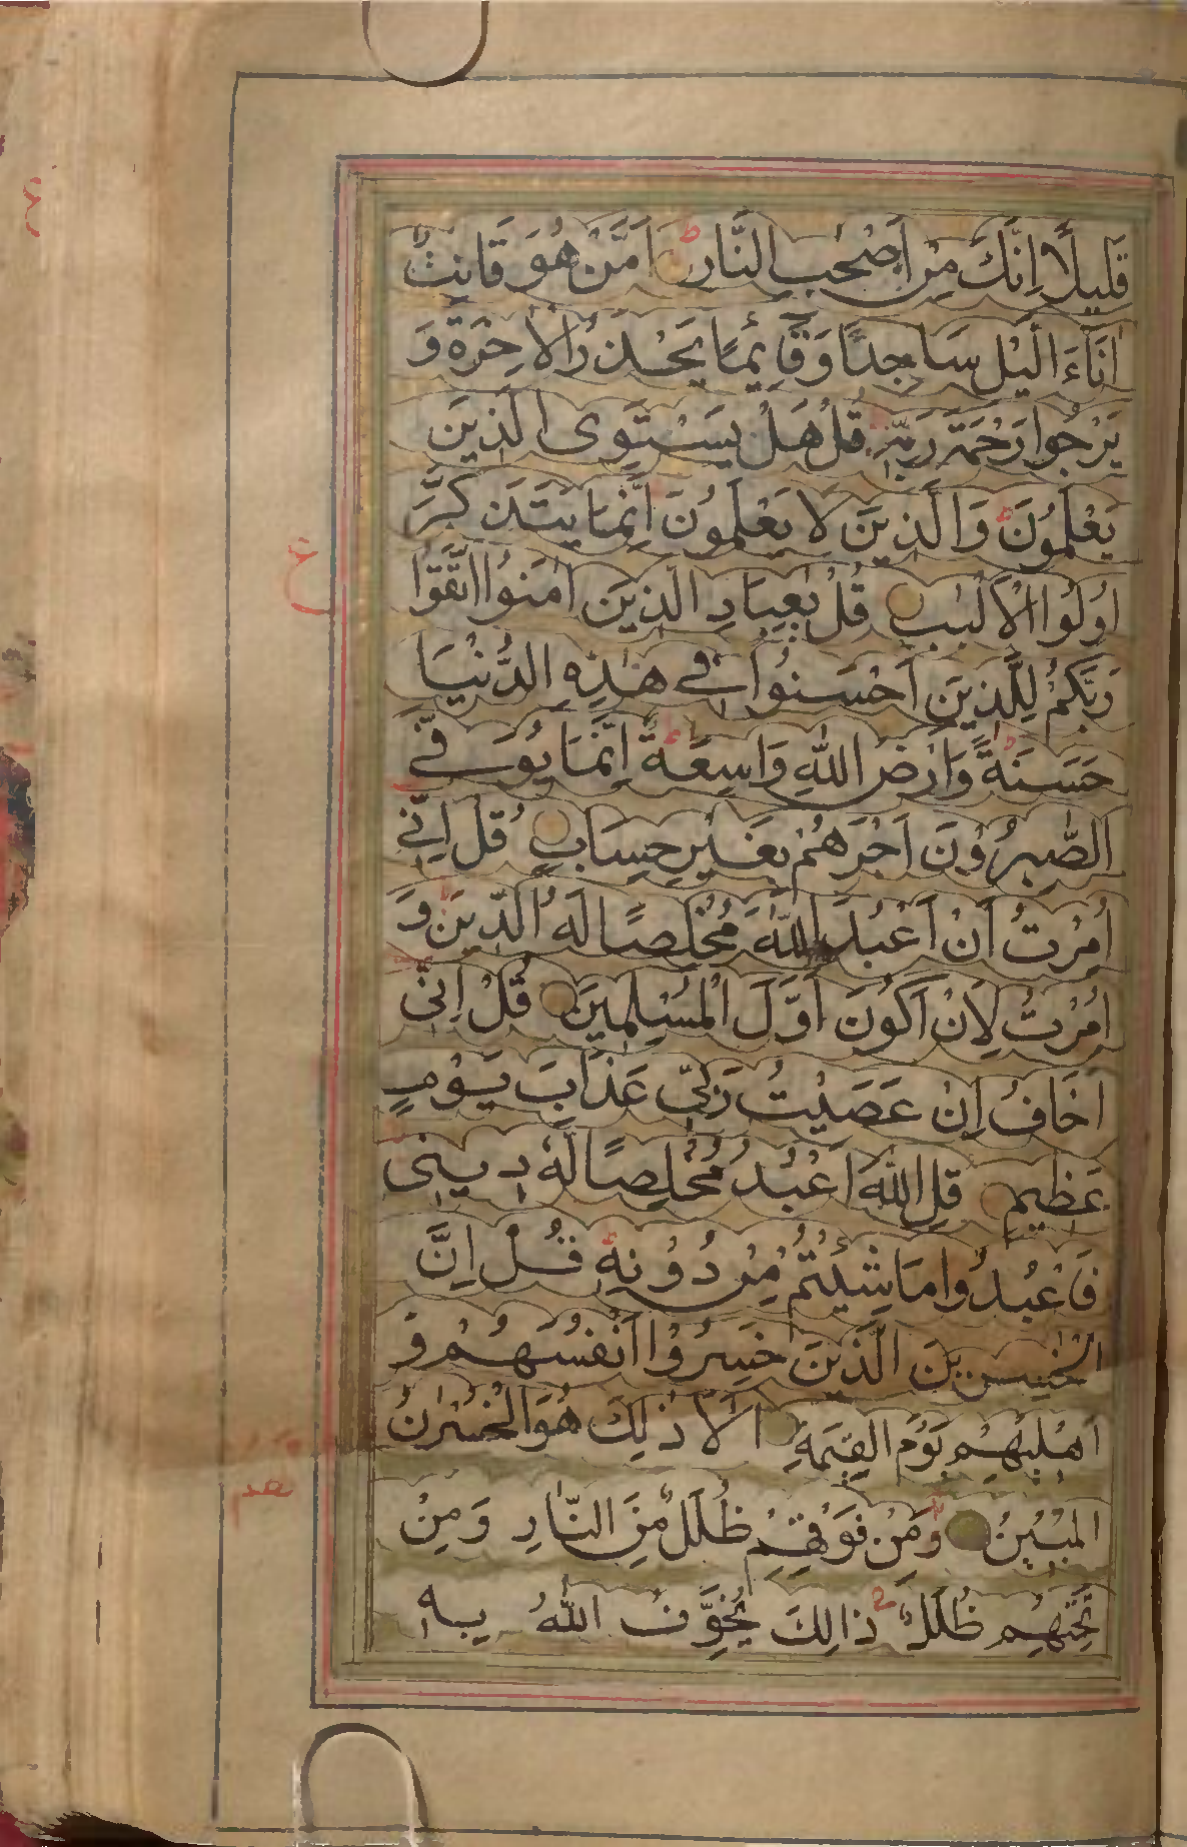 قَلِيلًا اِنَّكَ مِنْ اَصْحٰبِ النَّارِ ط اَمَّنْ هُوَ قَانِتٌ
اٰنَآءَ الَّيْلِ سَاجِدًا وَّقَآئِمًا يَحْذَرُ الْاٰخِرَةَ وَ
يَرْجُوا رَحْمَةَ رَبِّهٖ قُلْ هَلْ يَسْتَوِى الَّذِيْنَ
يَعْلَمُوْنَ وَالَّذِيْنَ لَا يَعْلَمُوْنَ اِنَّمَا يَتَذَكَّرُ
اُولُوا الْاَلْبٰبِ قُلْ يٰعِبَادِ الَّذِيْنَ اٰمَنُوا اتَّقُوْا
رَبَّكُمْ لِلَّذِيْنَ اَحْسَنُوْا فِے هٰذِهِ الدُّنْيَا
حَسَنَةٌ وَاَرْضُ اللّٰهِ وَاسِعَةٌ اِنَّمَا يُوَفَّے
الصّٰبِرُوْنَ اَجْرَهُمْ بِغَيْرِ حِسَابٍ قُلْ اِنِّے
اُمِرْتُ اَنْ اَعْبُدَ اللّٰهَ مُخْلِصًا لَهُ الدِّيْنَ وَ
اُمِرْتُ لِاَنْ اَكُوْنَ اَوَّلَ الْمُسْلِمِيْنَ قُلْ اِنِّى
اَخَافُ اِنْ عَصَيْتُ رَبِّى عَذَابَ يَوْمٍ
عَظِيْمٍ قُلِ اللّٰهَ اَعْبُدُ مُخْلِصًا لَهٗ دِيْنِى
فَاعْبُدُوا مَا شِئْتُمْ مِنْ دُوْنِهٖ قُلْ اِنَّ
الْخٰسِرِيْنَ الَّذِيْنَ خَسِرُوْا اَنْفُسَهُمْ وَ
اَهْلِيْهِمْ يَوْمَ الْقِيٰمَةِ اَلَا ذٰلِكَ هُوَ الْخُسْرٰنُ
الْمُبِيْنُ وَمِنْ فَوْقِهِمْ ظُلَلٌ مِنَ النَّارِ وَمِنْ
تَحْتِهِمْ ظُلَلٌ ذَالِكَ يُخَوِّفُ اللّٰهُ بِهٖ
ع